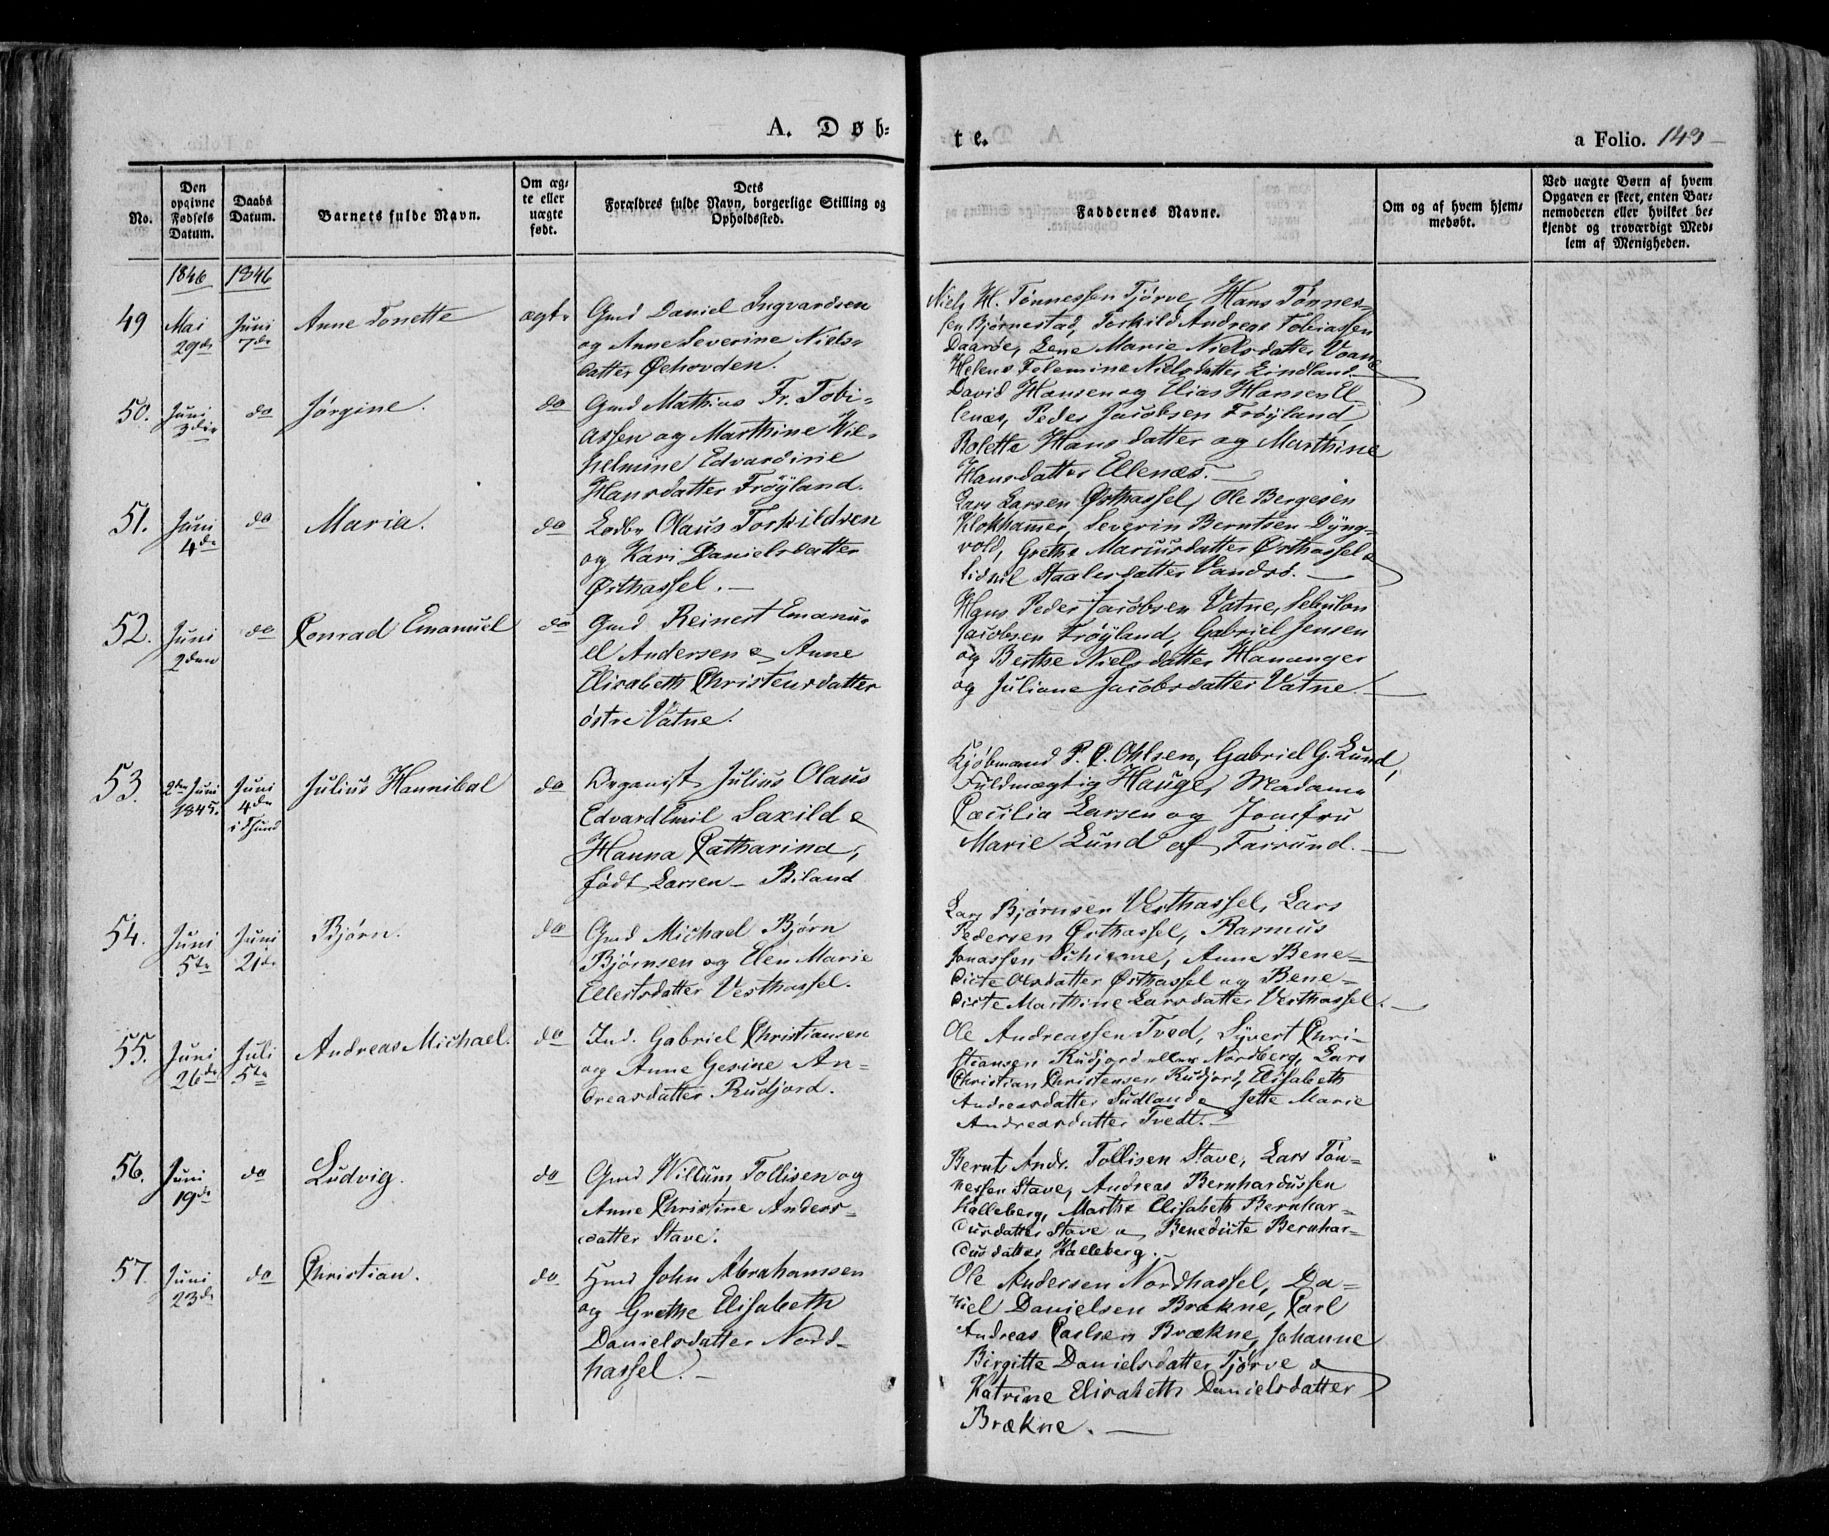 A. Døb-
te.
a Folio. 143
No.
Den opgivne Fødsels Datum.
Daabs Datum.
Barnets fulde Navn.
Om ægte eller uægte født.
Dets
Forældres fulde Navn, borgerlige Stilling og
Opholdssted.
Faddernes Navne.
Om og af hvem hjem-
medøbt.
Ved uægte Børn af hvem
Opgaven er skeet, enten Bar-
nemoderen eller hvilket be-
kjendt og troværdigt Med-
lem af Menigheden.
1846
1846
49
Mai
29de
Juni
7de
Anne Tonette
ægte
Gmd Daniel Ingvardsen
og Anne Severine Niels-
datter Øehovden.
Niels H. Tønnessen Tjørve, Hans Tønnes-
sen Bjørnestad, Torkild Andreas Tobiassen
Daarøe, Lene Marie Nielsdatter Voane
Helene Felemine Nielsdatter Lindland.
50.
Juni
3die
do
Jørgine.
do
Gmd Mathias Fr. Tobi-
assen og Marthine Wil-
helmine Edvardine
Hansdatter Frøyland.
David Hansen og Elias Hansen El-
lenæs, Peder Jacobsen Frøyland,
Bolette Hansdatter og Marthine
Hansdatter Ellenæs.
51.
Juni
4de
do
Maria.
do
Lodbr Olaus Torkildsen
og Kari Danielsdatter
Østhassel.
Lars Larsen Østhassel, Ole Bergesen
Klokhamer, Severin Berntsen Dyng-
vold, Grethe Mariusdatter Østhassel &
Sidsel Staalesdatter Vandsø.
52.
Juni
2den
do
Conrad Emanuel
do
Gmd Reinert Emanu-
el Andersen & Anne
Elisabeth Christensdatter
østre Vatne.
Hans Peder Jacobsen Vatne, Sebulon
Jacobsen Frøyland, Gabriel Jensen
og Berthe Nielsdatter Hananger
og Juliane Jacobsdatter Vatne.
53.
2den Juni
1845.
Juni
4de
i Thund
Julius Hannibal
do
Organist Julius Olaus
Edvard Emil Saxild &
Hanna Catharina,
født Larsen - Biland
Kjøbmand P. C. Ohlsen, Gabriel G. Lund,
Fuldmægtig Hauge, Madame
Cæcilia Larsen og Jomfru
Marie Lund af Farsund.
54.
Juni
5te
Juni
21de
Bjørn.
do
Gmd Michael Bjørn
Bjørnsen og Elen Marie
Ellertsdatter Vesthassel.
Lars Bjørnsen Vesthassel, Lars
Pedersen Østhassel, Rasmus
Jonassen Schieme, Anne Bene-
dicte Olsdatter Østhassel og Bene-
dicte Marthine Larsdatter Vesthassel.
55.
Juni
26de
Juli
5te
Andreas Michael.
do
Ind. Gabriel Christiansen
og Anne Gesine An-
dreasdatter Rudjord.
Ole Andreassen Tved, Syvert Chri-
stiansen Rudjord eller Nordberg, Lars
Christian Christensen Rudjord, Elisabeth
Andreasdatter Sudland & Jette Marie
Andreasdatter Tvedt.
56.
Juni
19de
do
Ludvig.
do
Gmd Willum Tollisen og
Anne Christine Anders-
datter Stave.
Bernt Andr. Tollisen Stave, Lars Tøn-
nessen Stave, Andreas Bernhardussen
Halleberg, Marthe Elisabeth Bernhar-
dusdatter Stave & Benedicte Bernhar-
dusdatter Halleberg.
57.
Juni
23de
do
Christian.
do
Hmd John Abrahamsen
og Grethe Elisabeth
Danielsdatter Nord-
hassel.
Ole Andersen Nordhassel, Da-
niel Danielsen Brækne, Carl
Andreas Carlsen Brækne, Johanne
Birgitte Danielsdatter Tjørve &
Katrine Elisabeth Danielsdatter
Brækne.